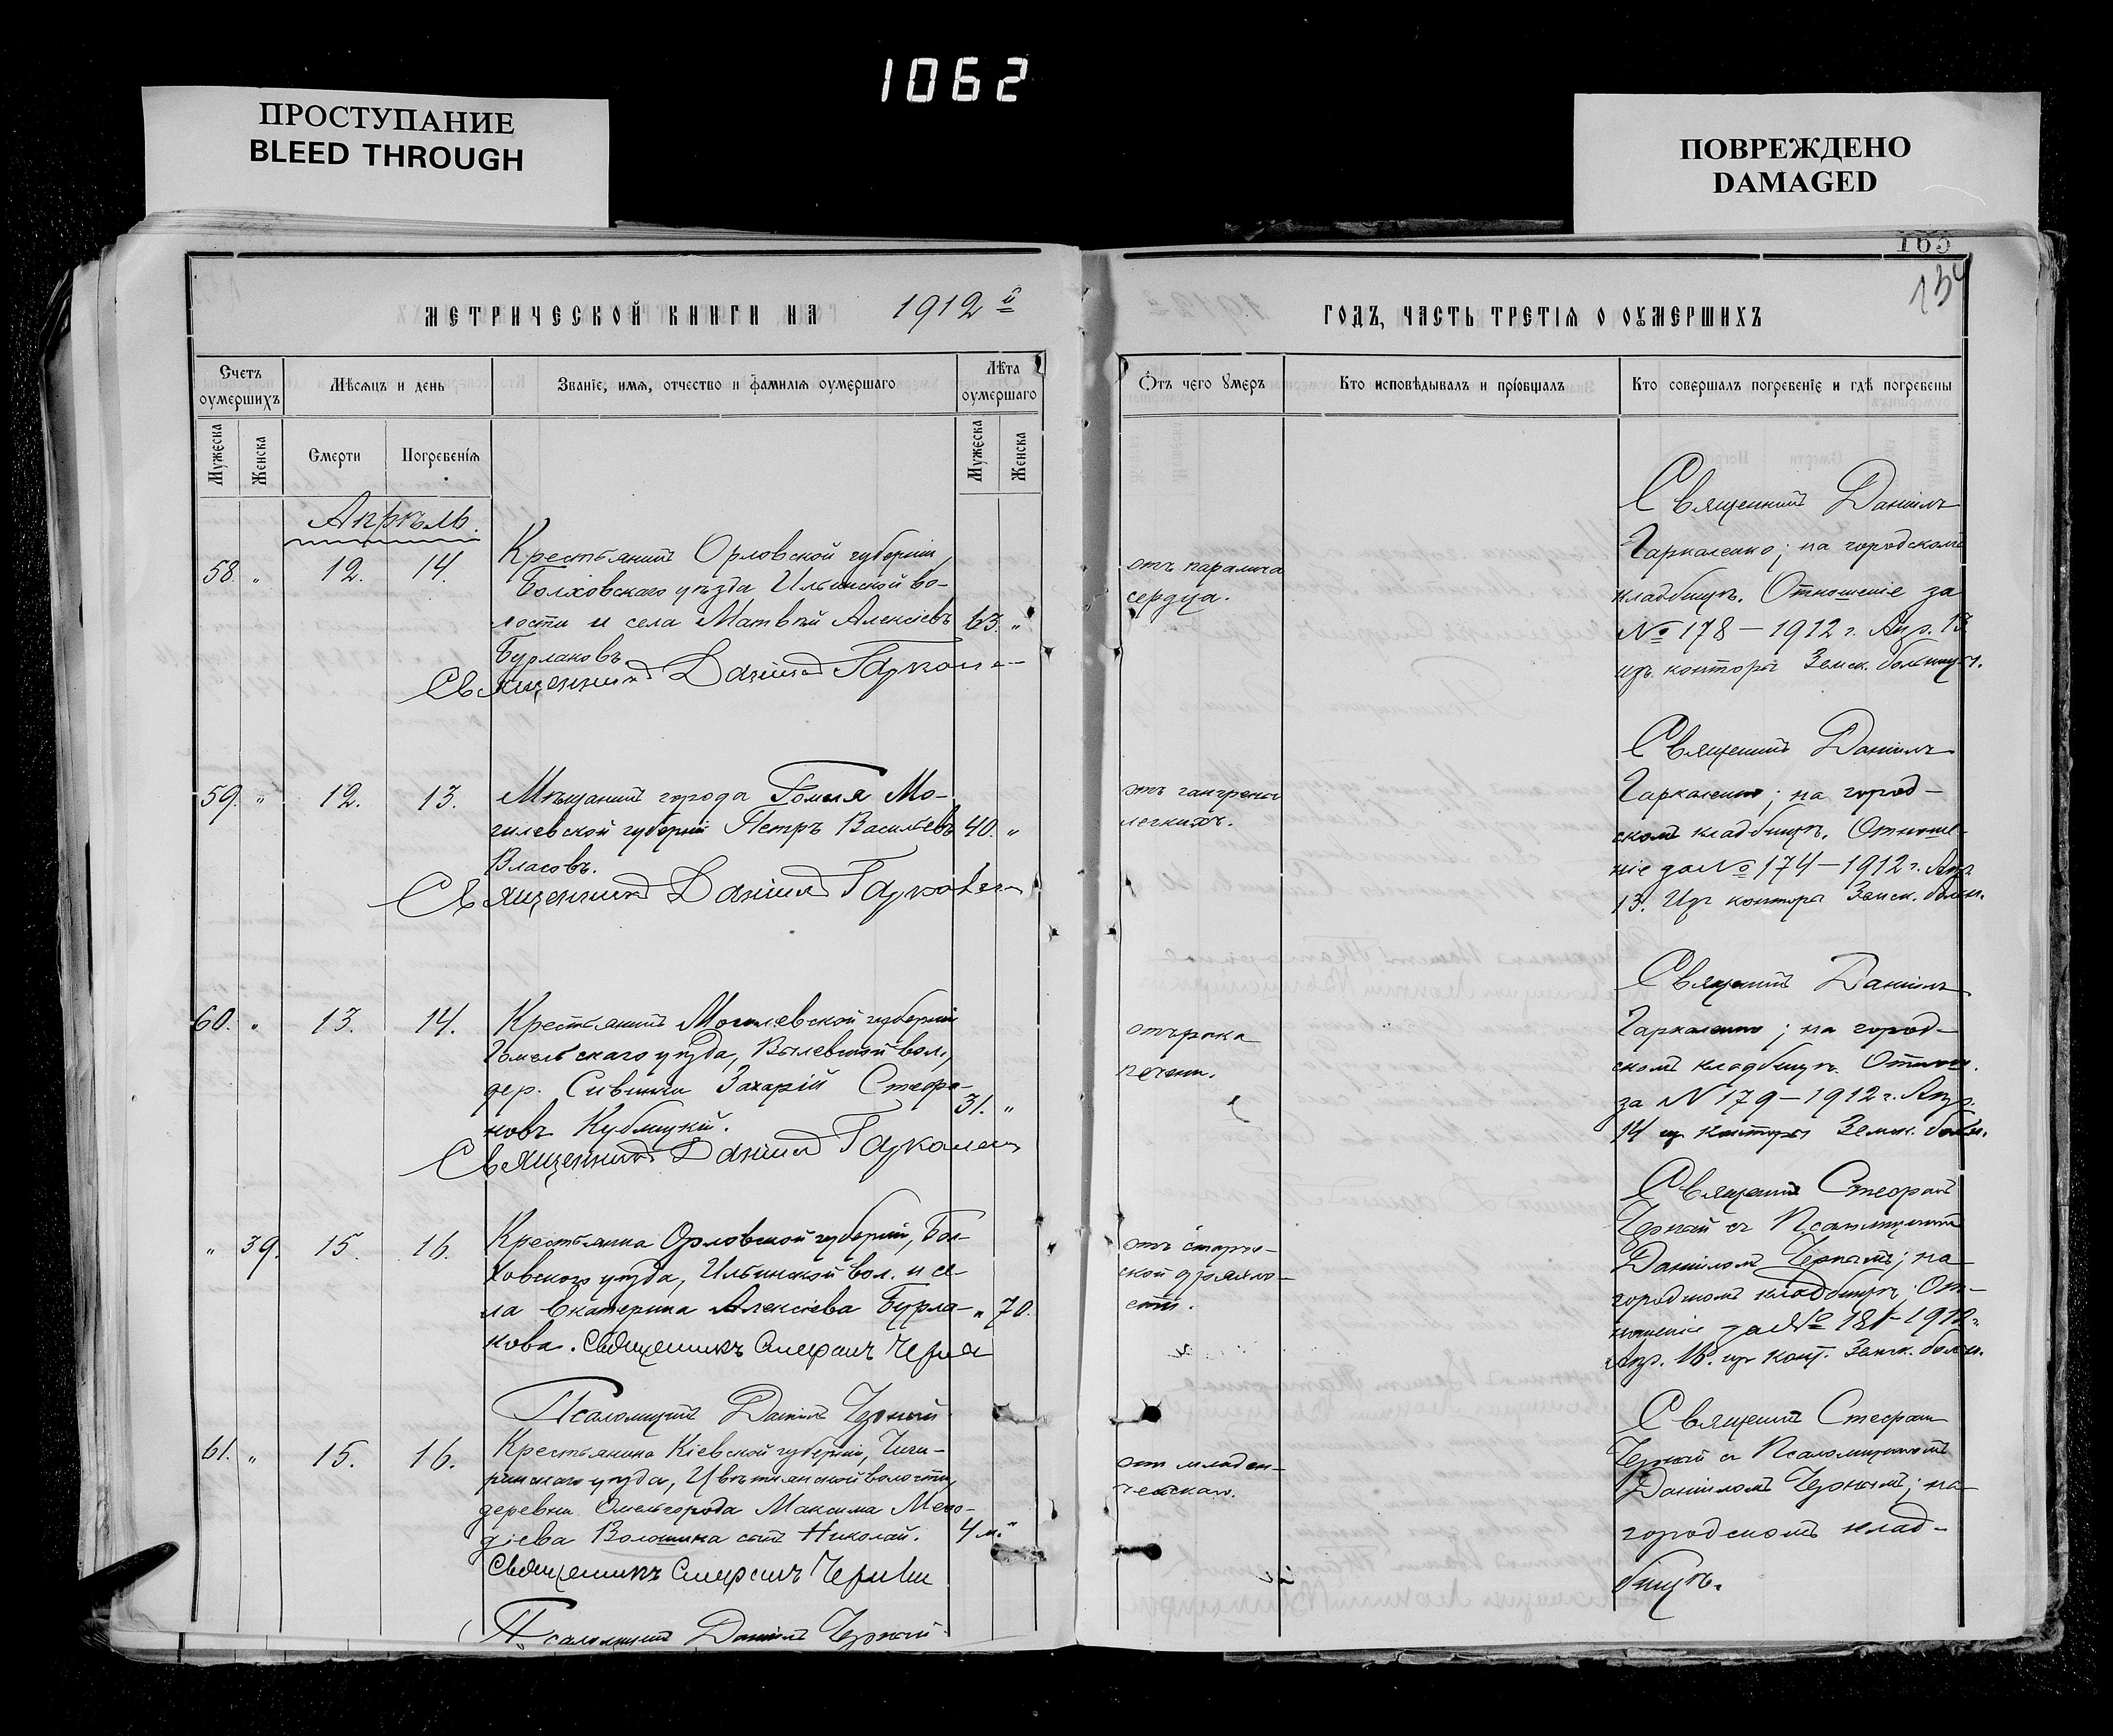 1062
ПРОСТУПАНИЕ
BLEED THROUGH
ПОВРЕЖДЕНО
DAMAGED
165
134
МЕТРИЧЕСКОЙ КНИГИ НА 1912 й
ГОДЪ, ЧАСТЬ ТРЕТІЯ О ОУМЕРШИХЪ
Счетъ оумершихъ
Мѣсяцъ и день
Званіе, имя, отчество и фамилія оумершаго
Лѣта оумершаго
Отъ чего умеръ
Кто исповѣдывалъ и пріобщалъ
Кто совершалъ погребеніе и гдѣ погребены
Мужеска
Женска
Смерти
Погребенія
Мужеска
Женска
Апрѣль.
58. „ 12. 14.
Крестьянинъ Орловской губерніи,
Болховскаго уѣзда Ильинской во-
лости и села Матвѣй Алексіевъ 63. „
Бурлаковъ
Священникъ Даніилъ Гаркале
отъ паралича
сердца.
Священникъ Даніилъ
Гаркаленко; на городскомъ
кладбищѣ. Отношеніе за
№ 178 – 1912 г. Апр. 13
изъ конторы Земск. больницы.
59. „ 12. 13.
Мѣщанинъ города Гомеля Мо-
гилевской губерніи Петръ Васильевъ 40. „
Власовъ.
Священникъ Даніилъ Гаркален
отъ гангрены
легкихъ.
Священникъ Даніилъ
Гаркаленко; на город-
скомъ кладбищѣ. Отноше-
ніе за № 174 – 1912 г. Апр.
13. Изъ конторы Земск. больн.
60. „ 13. 14.
Крестьянинъ Могилевской губерніи
Гомельскаго уѣзда, вол.,
дер. Сивинки Захарій Стефа-
новъ Кублицкій. 31. „
Священникъ Даніилъ Гаркален
отъ рака
печени.
Священникъ Даніилъ
Гаркаленко; на город-
скомъ кладбищѣ. Отнош.
за N 179 – 1912 г. Апр.
14 изъ конторы Земск. больн.
„ 39. 15. 16.
Крестьянка Орловской губерніи, Бол-
ховскаго уѣзда, Ильинской вол. и се-
ла Екатерина Алексіева Бурла- „ 70.
кова. Священникъ Стефанъ Черны
Псаломщикъ Даніилъ Черный
отъ старче-
ской дряхло-
сти.
Священникъ Стефанъ
Черный съ Псаломщикомъ
Даніиломъ Чернымъ; на
городскомъ кладбищѣ. От-
ношеніе за № 181 – 1912 г.
Апр. 16. изъ конт. Земск. больн.
61. „ 15. 16.
Крестьянина Кіевской губерніи, Чиги-
ринскаго уѣзда, волости,
деревни Омельгорода Максима Меѳо-
діева Волошина сынъ Николай. 4 м. „
Священникъ Стефанъ Черны
Псаломщикъ Даніилъ Черный
отъ младен-
ческаго.
Священникъ Стефанъ
Черный съ Псаломщикомъ
Даніиломъ Чернымъ; на
городскомъ клад-
бищѣ.